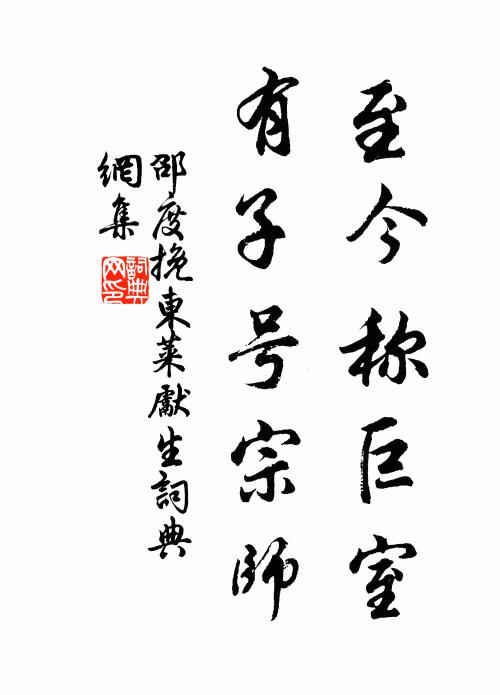 至今称巨室
有子号宗師
邵度挽東萊獻生詞典
網集
詞典網印